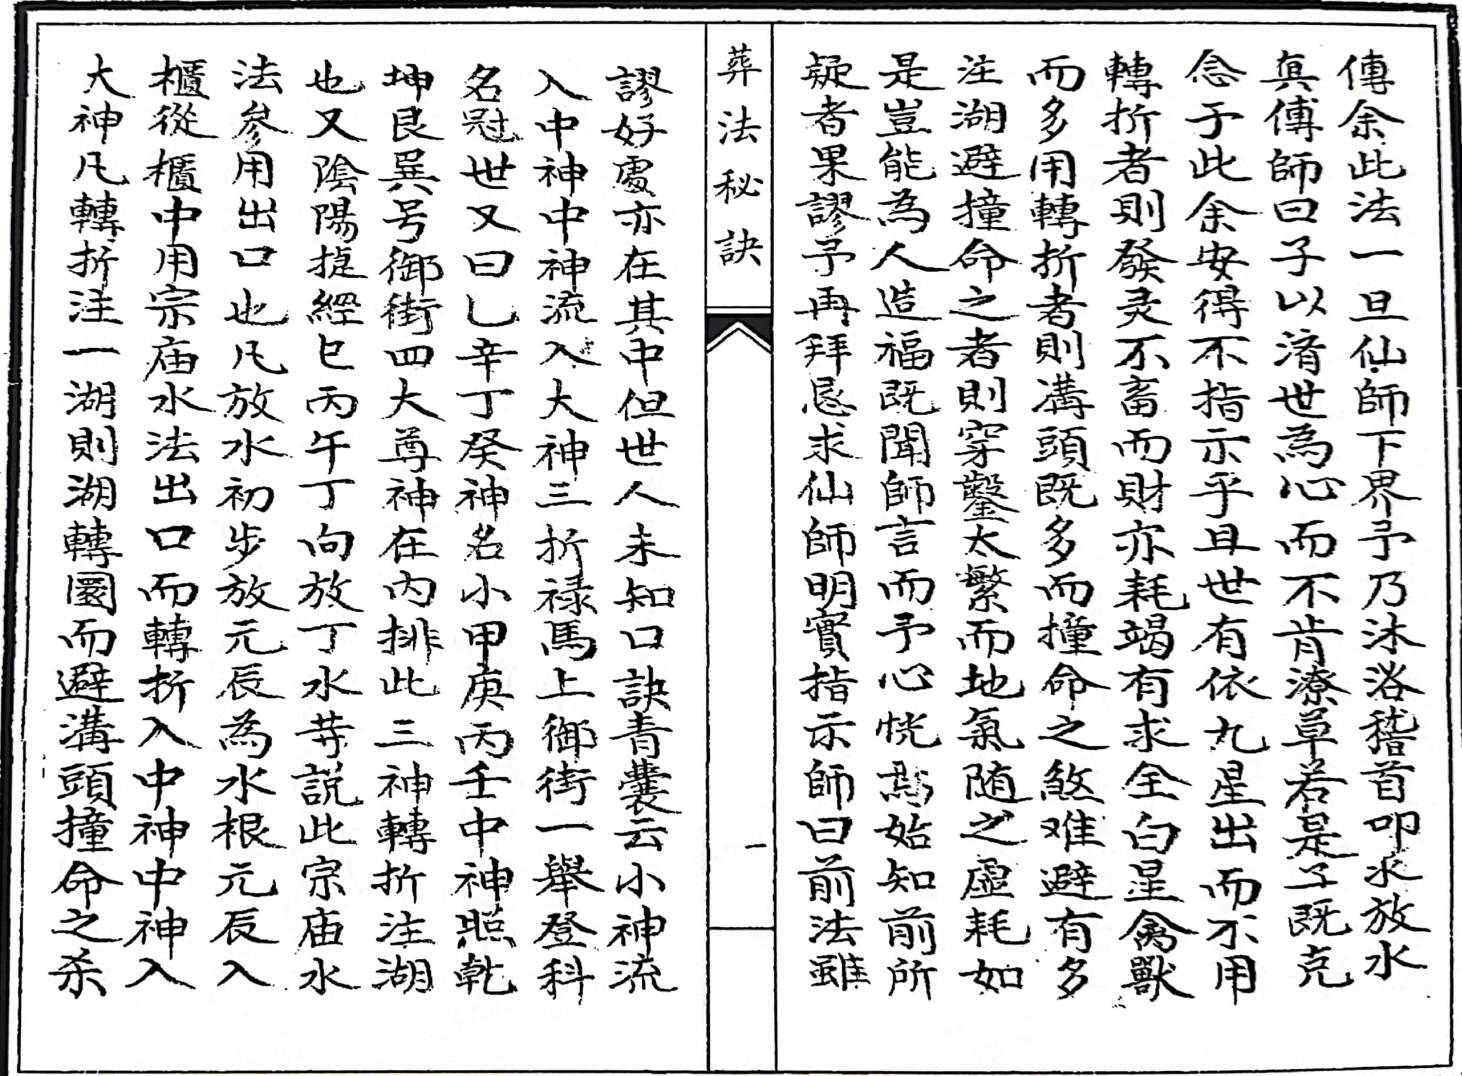 傳余此法一旦仙師下界予乃沐浴稽首叩求放水
真傳師曰子以濟世為心而不肯潦草若是子既克
念于此余安得不指示乎且世有依九星出而不用
轉折者則發灵不畜而財亦耗竭有求全白星禽獸
而多用轉折者則溝頭既多而撞命之煞难避有多
注湖避撞命之者則穿鑿太繁而地氣随之虛耗如
是豈能為人造福既聞師言而予心恍為始知前所
疑者果謬予再拜恳求仙師明實指示師曰前法雖
葬法秘訣
一
謬好處亦在其中但世人未知口訣青囊云小神流
入中神中神流入大神三折禄馬上御街一舉登科
名冠世又曰乚辛丁癸神名小甲庚丙壬中神照乾
坤艮巽号御街四大尊神在内排此三神轉折注湖
也又陰陽捷經巳丙午丁向放丁水苐説此宗庙水
法參用出口也凡放水初步放元辰為水根元辰入
櫃從櫃中用宗庙水法出口而轉折入中神中神入
大神凡轉折注一湖則湖轉圜而避溝頭撞命之杀